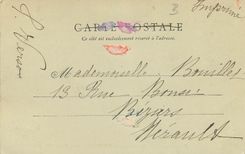 Imprimé
CARTE POSTALE
Ce côté est exclusivement réservé à l'adresse.
Mademoiselle Bouilles
13 Rue
Béziers
Hérault